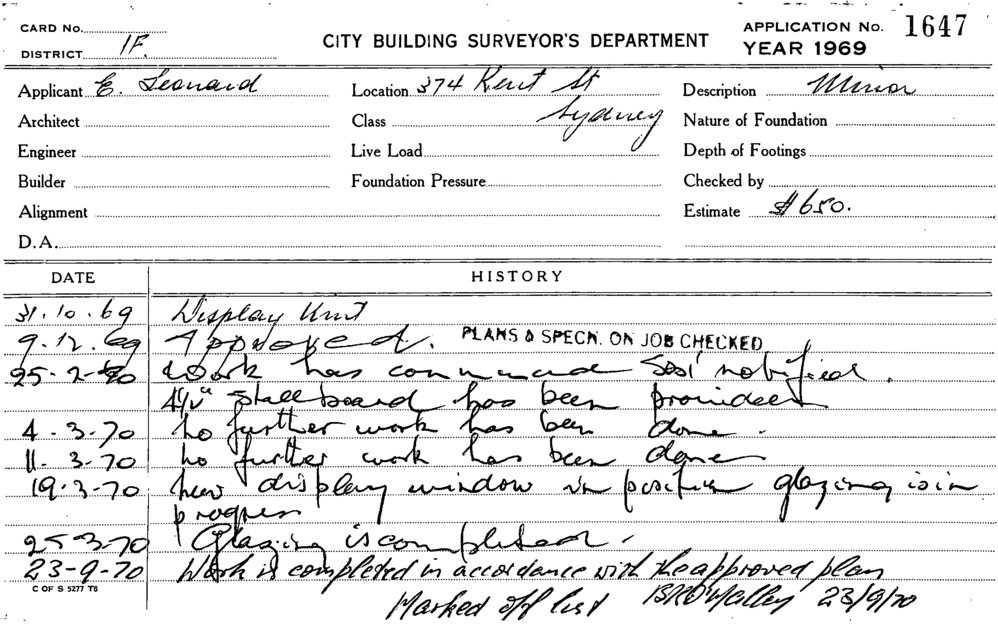 CARD No.
DISTRICT 1F.
CITY BUILDING SURVEYOR'S DEPARTMENT
APPLICATION No. 1647
YEAR 1969
Applicant E. Leonard
Location 374 Kent St
Sydney
Description Minor
Architect
Class
Nature of Foundation
Engineer
Live Load
Depth of Footings
Builder
Foundation Pressure
Checked by
Alignment
Estimate $650.
D.A.
DATE HISTORY
31.10.69 Display Unit
9.12.69 Approved. PLANS & SPECN. ON JOB CHECKED
25-2-70 Work has commenced notified.
stallboard has been provided
4-3-70 no further work has been done.
11-3-70 no further work has been done
19-3-70 new display window in position glazing is in
progress
25-3-70 Glazing is completed.
23-9-70 Work is completed in accordance with the approved plan
Marked off list 23/9/70
C OF S 5277 T5